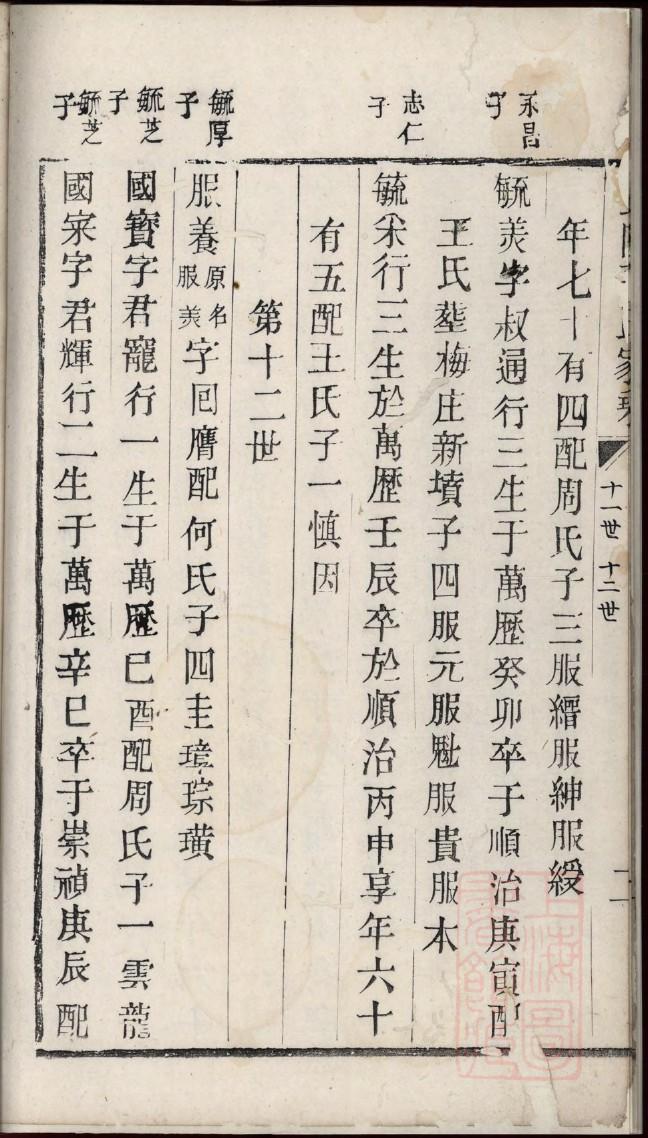 十一世 十二世
二
年七十有四配周氏子三服縉服紳服綬
永昌子
毓美字叔通行三生于萬歷癸卯卒于順治庚寅配
王氏塟梅庄新墳子四服元服魁服貴服本
志仁子
毓采行三生於萬歷壬辰卒於順治丙申享年六十
有五配王氏子一慎因
第十二世
毓厚子
服養原名服美字回膺配何氏子四圭璋琮璜
毓芝子
國寳字君寵行一生于萬歷己酉配周氏子一雲龍
毓芝子
國寀字君輝行二生于萬歷辛巳卒于崇禎庚辰配